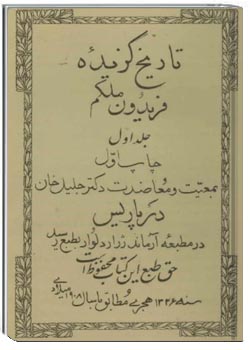 تاریخ گزیده
فریدون ملکم
جلد اول
چاپ اول
بمعیت و معاضدت دکتر جلیل خان
در پاریس
در مطبعه آرماند ژرار دلوار بطبع رسید
حق طبع این کتاب محفوظ است
سنه ۱۳۲۶ هجری مطابق با سال ۱۹۰۸ میلادی